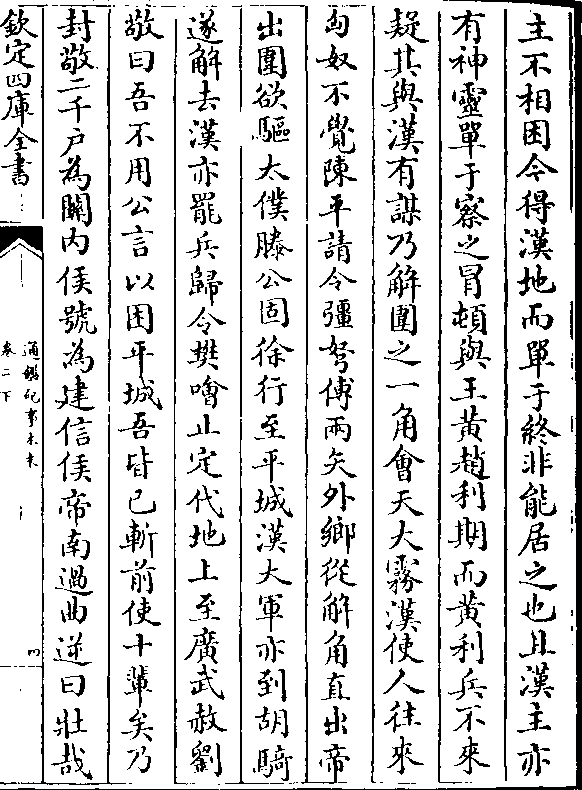 主不相困今得漢地而單于終非能居之也且漢主亦
有神靈單于察之冒頓與王黃趙利期而黃利兵不來
疑其與漢有謀乃解圍之一角會天大霧漢使人往來
匈奴不覺陳平請令彊弩傅兩矢外鄉從解角直出帝
出圍欲驅太僕滕公固徐行至平城漢大軍亦到胡騎
遂解去漢亦罷兵歸令樊噲止定代地上至廣武赦劉
敬曰吾不用公言以困平城吾皆已斬前使十輩矣乃
封敬二千户為關内侯號為建信侯帝南過曲逆曰壯哉
欽定四庫全書
通鑑紀事本末
卷二下
四